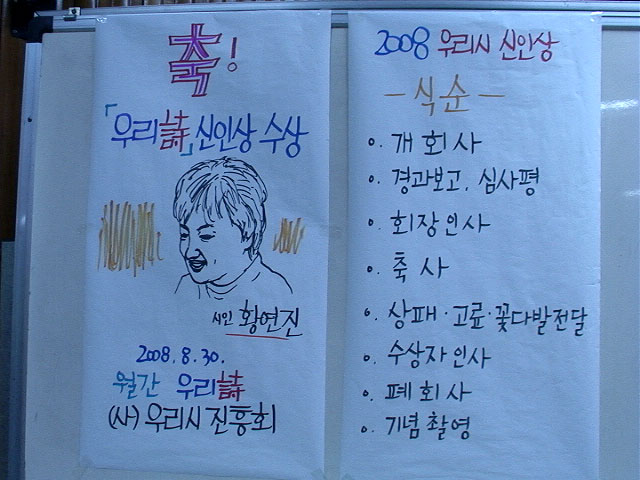 축!
「우리詩」신인상 수상
시인 황연진
2008. 8. 30.
월간 우리詩
(사) 우리시 진흥회
2008 우리시 신인상
- 식순 -
o. 개회사
o. 경과보고. 심사평
o. 회장인사
o. 축사
o. 상패·고료·꽃다발전달
o. 수상자인사
o. 폐회사
o. 기념촬영